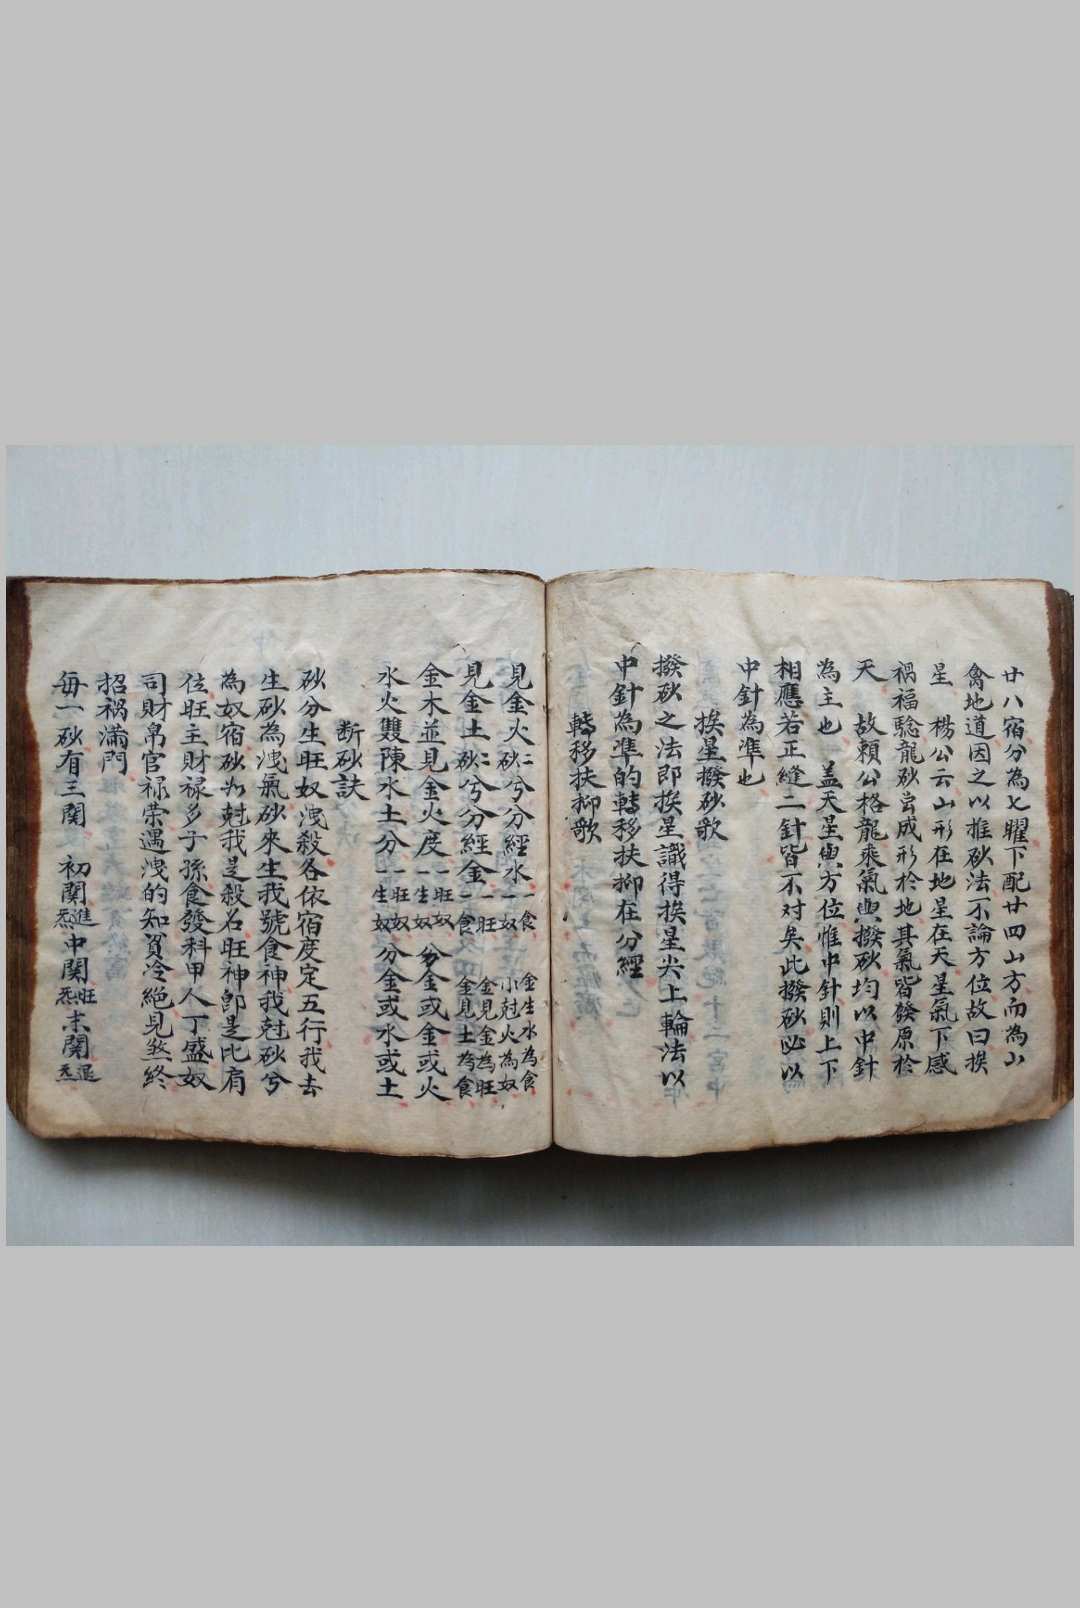 廿八宿分為七曜下配廿四山方而為山
禽地道因之以推砂法不論方位故曰挨
星　楊公云山形在地星在天星氣下感
禍福驗龍砂尝成形於地其氣皆發原於
天　故賴公格龍乘氣與撥砂均以中針
為主也　盖天星與方位惟中針則上下
相應若正縫二針皆不対矣此撥砂必以
中針為準也
挨星撥砂歌
撥砂之法即挨星識得挨星尖上輪法以
中針為準的轉移扶抑在分經
轉移扶抑歌
見金火砂二兮分經水一食一奴　金生水為食小尅火為奴
見金土砂二兮分經金一旺一食　金見金為旺金見土為食
金木並見金火度一旺奴一生奴　分金或金或火
水火雙陳水土分一旺奴一生奴　分金或水或土
断砂訣
砂分生旺奴洩殺各依宿度定五行我去
生砂為洩氣砂來生我號食神我尅砂兮
為奴宿砂如尅我是殺名旺神卽是比肩
位旺主財禄多子孫食發科甲人丁盛奴
司財帛官禄荣遇洩的知貧冷絕見煞終
招禍滿門
每一砂有三関　初関進炁中関旺炁末関退炁